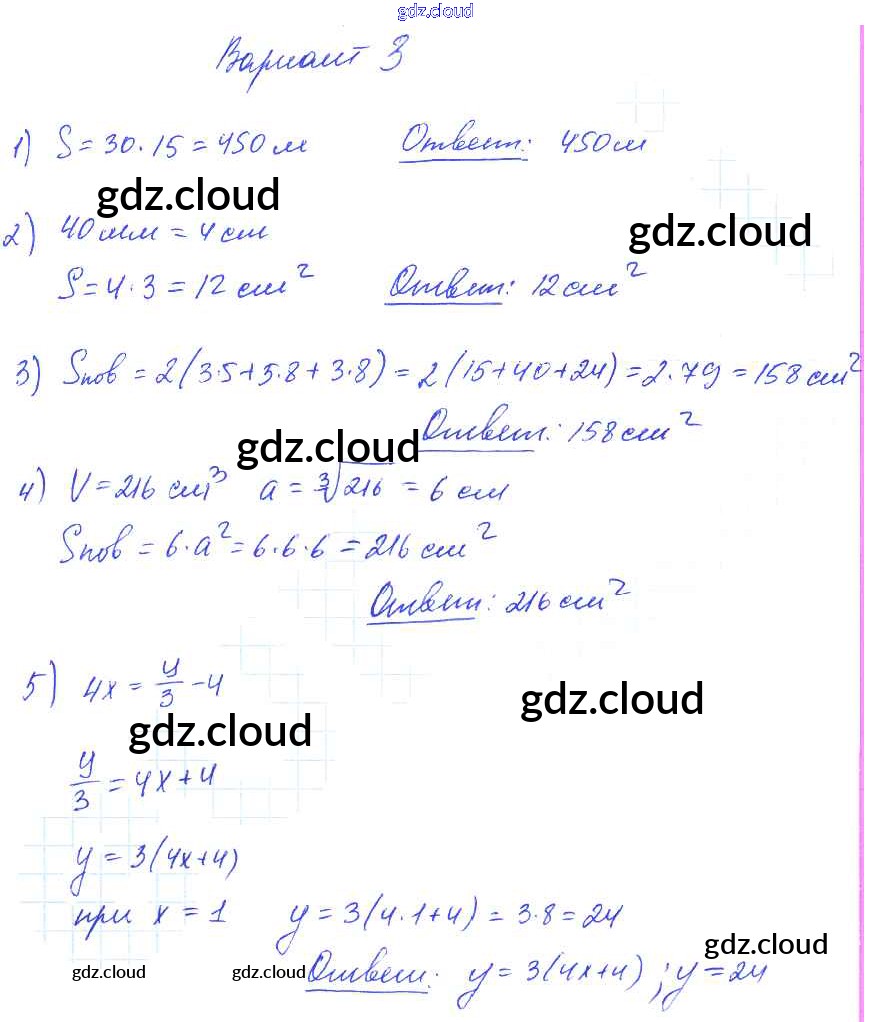 gdz.cloud
Вариант 3
1) S = 30 · 15 = 450 м Ответ: 450 м
gdz.cloud
gdz.cloud
2) 40 мм = 4 см
S = 4 · 3 = 12 см² Ответ: 12 см²
3) Sпов = 2(3·5+5·8+3·8) = 2(15+40+24) = 2·79 = 158 см²
Ответ: 158 см²
gdz.cloud
4) V = 216 см³ a = ∛216 = 6 см
Sпов = 6·a² = 6·6·6 = 216 см²
Ответ: 216 см²
5) 4x = y/3 - 4
gdz.cloud
gdz.cloud
y/3 = 4x + 4
y = 3(4x+4)
при x = 1 y = 3(4·1+4) = 3·8 = 24
gdz.cloud
gdz.cloud gdz.cloud Ответ: y = 3(4x+4); y = 24